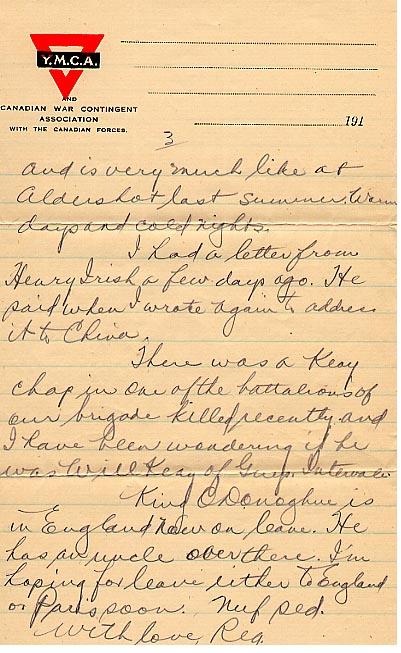 Y.M.C.A.
AND
CANADIAN WAR CONTINGENT
ASSOCIATION
WITH THE CANADIAN FORCES.
191
3
and is very much like at
Aldershot last summer. Warm
days and cold nights.
I had a letter from
Henry Irish a few days ago. He
said when I wrote again to address
it to China.
There was a Keay
chap in one of the battalions of
our brigade killed recently and
I have been wondering if he
was Will Keay of Intervale
King O'Donoghue is
in England now on leave. He
has an uncle over there. I'm
hoping for leave either to England
or Paris soon. Nuf sed.
With love, Reg.